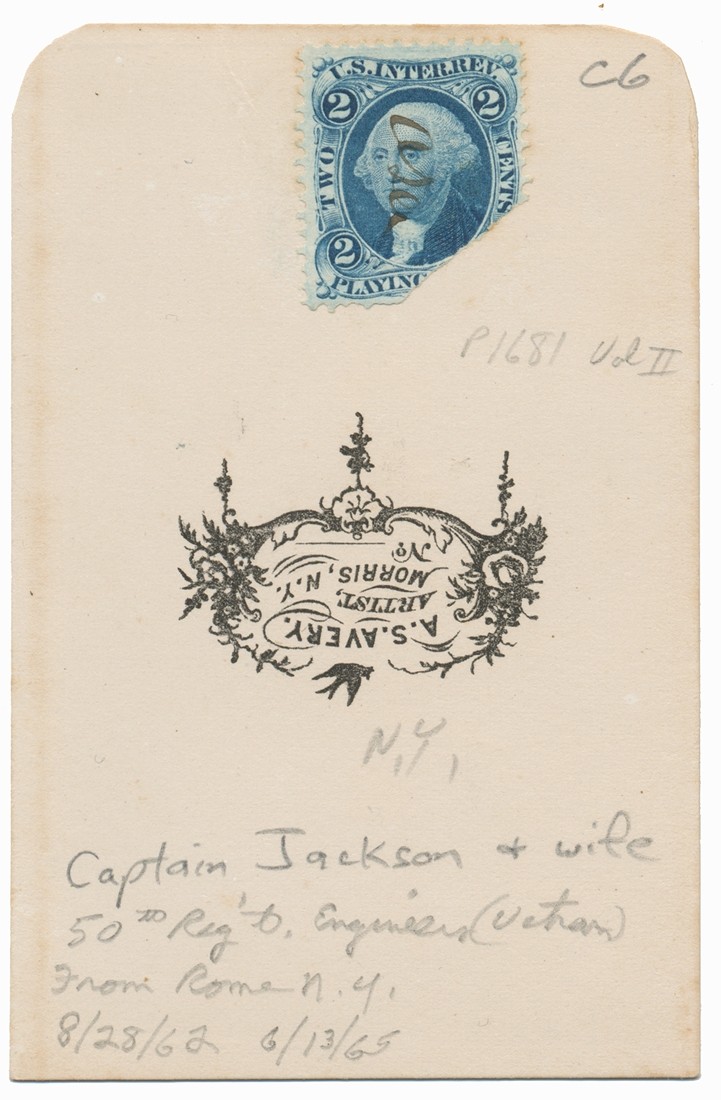 C6
U.S. INTER. REV.
2 2
TWO CENTS
2
PLAYING
P1681 Vol II
A. S. AVERY.
ARTIST,
MORRIS, N.Y.
No.
N.Y.
Captain Jackson + wife
50th Reg't. Engineers (Veteran)
From Rome N.Y.
8/28/62 6/13/65